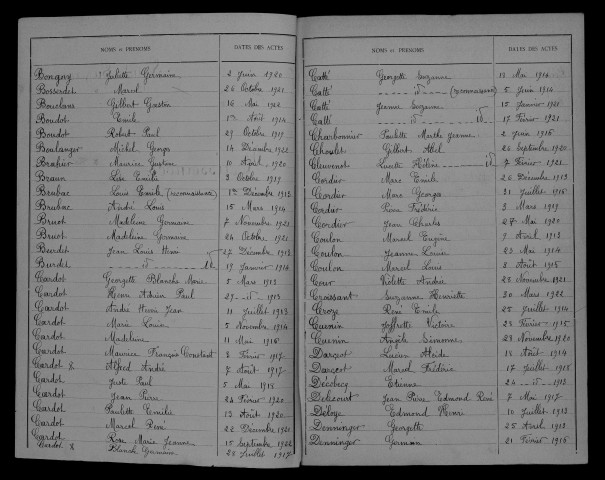 NOMS et PRÉNOMS DATES DES ACTES
Bongny Juliette Germaine 2 Juin 1920
Bosserdet Marcel 26 Octobre 1921
Bouclans Gilbert Gaston 16 Mai 1922
Boudot Emile 1er Août 1914
Boudot Robert Paul 29 Octobre 1919
Boulanger Michel Georges 14 Décembre 1922
Maurice Gustave 10 Août 1920
Braun Lise Emilie 3 Octobre 1919
Brubac Louis Emile (reconnaissance) 1er Décembre 1913
Brubac André Louis 15 Mars 1914
Bruot Madeleine Germaine 7 Novembre 1921
Bruot Madeleine Germaine 24 Octobre 1921
Jean Louis Henri 27 Décembre 1913
Burdet 19 Janvier 1914
Cardot Georgette Blanche Marie 5 Mars 1913
Cardot Henri Adrien Paul 29 - d° 1913
Cardot André Henri Jean 11 Juillet 1913
Cardot Marie Louise 5 Novembre 1914
Cardot Madeleine 11 Mai 1916
Cardot Maurice François Constant 8 Février 1917
Cardot X Alfred André 7 Août 1917
Cardot Juste Paul 5 Mai 1918
Cardot Jean Pierre 24 Février 1920
Cardot Paulette Emilie 13 Août 1920
Cardot Marcel René 22 Décembre 1921
Cardot Rose Marie Jeanne 15 Septembre 1922
Cardot X Blanche Germaine 28 Juillet 1917
NOMS et PRÉNOMS DATES DES ACTES
Catté Georgette Suzanne 13 Mai 1914
Catté - d° - (reconnaissance) 5 Juin 1914
Catté Jeanne Suzanne 15 Janvier 1921
Catté - d° - d° 17 Février 1921
Charbonnier Paulette Marthe Jeanne 2 Juin 1916
Choulet Gilbert Abel 26 Septembre 1920
Cleuvenot Lucette Hélène 7 Février 1921
Cordier Marc Emile 26 Décembre 1913
Cordier Marc Georges 31 Juillet 1916
Cordier Pierre Frédéric 3 Mars 1919
Cordier Jean Charles 27 Mai 1920
Coulon Marcel Eugène 9 Avril 1913
Coulon Jeanne Louise 23 Mai 1914
Coulon Marcel Louis 8 Août 1915
Cour Violette Andrée 28 Novembre 1921
Croissant Suzanne Henriette 30 Mars 1922
Croze René Emile 25 Juillet 1914
Cuenin Joffrette Victoire 28 Février 1915
Cuenin Angèle Simonne 23 Novembre 1920
Darçot Lucien Alcide 18 Août 1914
Darçot Marcel Frédéric 17 Juillet 1915
Décobecq Etienne 24 - d° 1913
Delicourt Jean Pierre Edmond René 7 Mai 1917
Déloye Edmond Henri 10 Juillet 1913
Denninger Georgette 25 Avril 1913
Denninger Germain 21 Février 1916